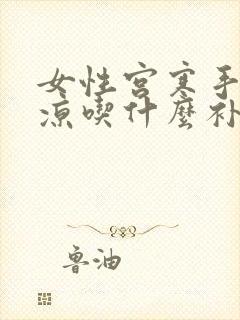 女性宫寒手
凉喫什麼补
鲁油